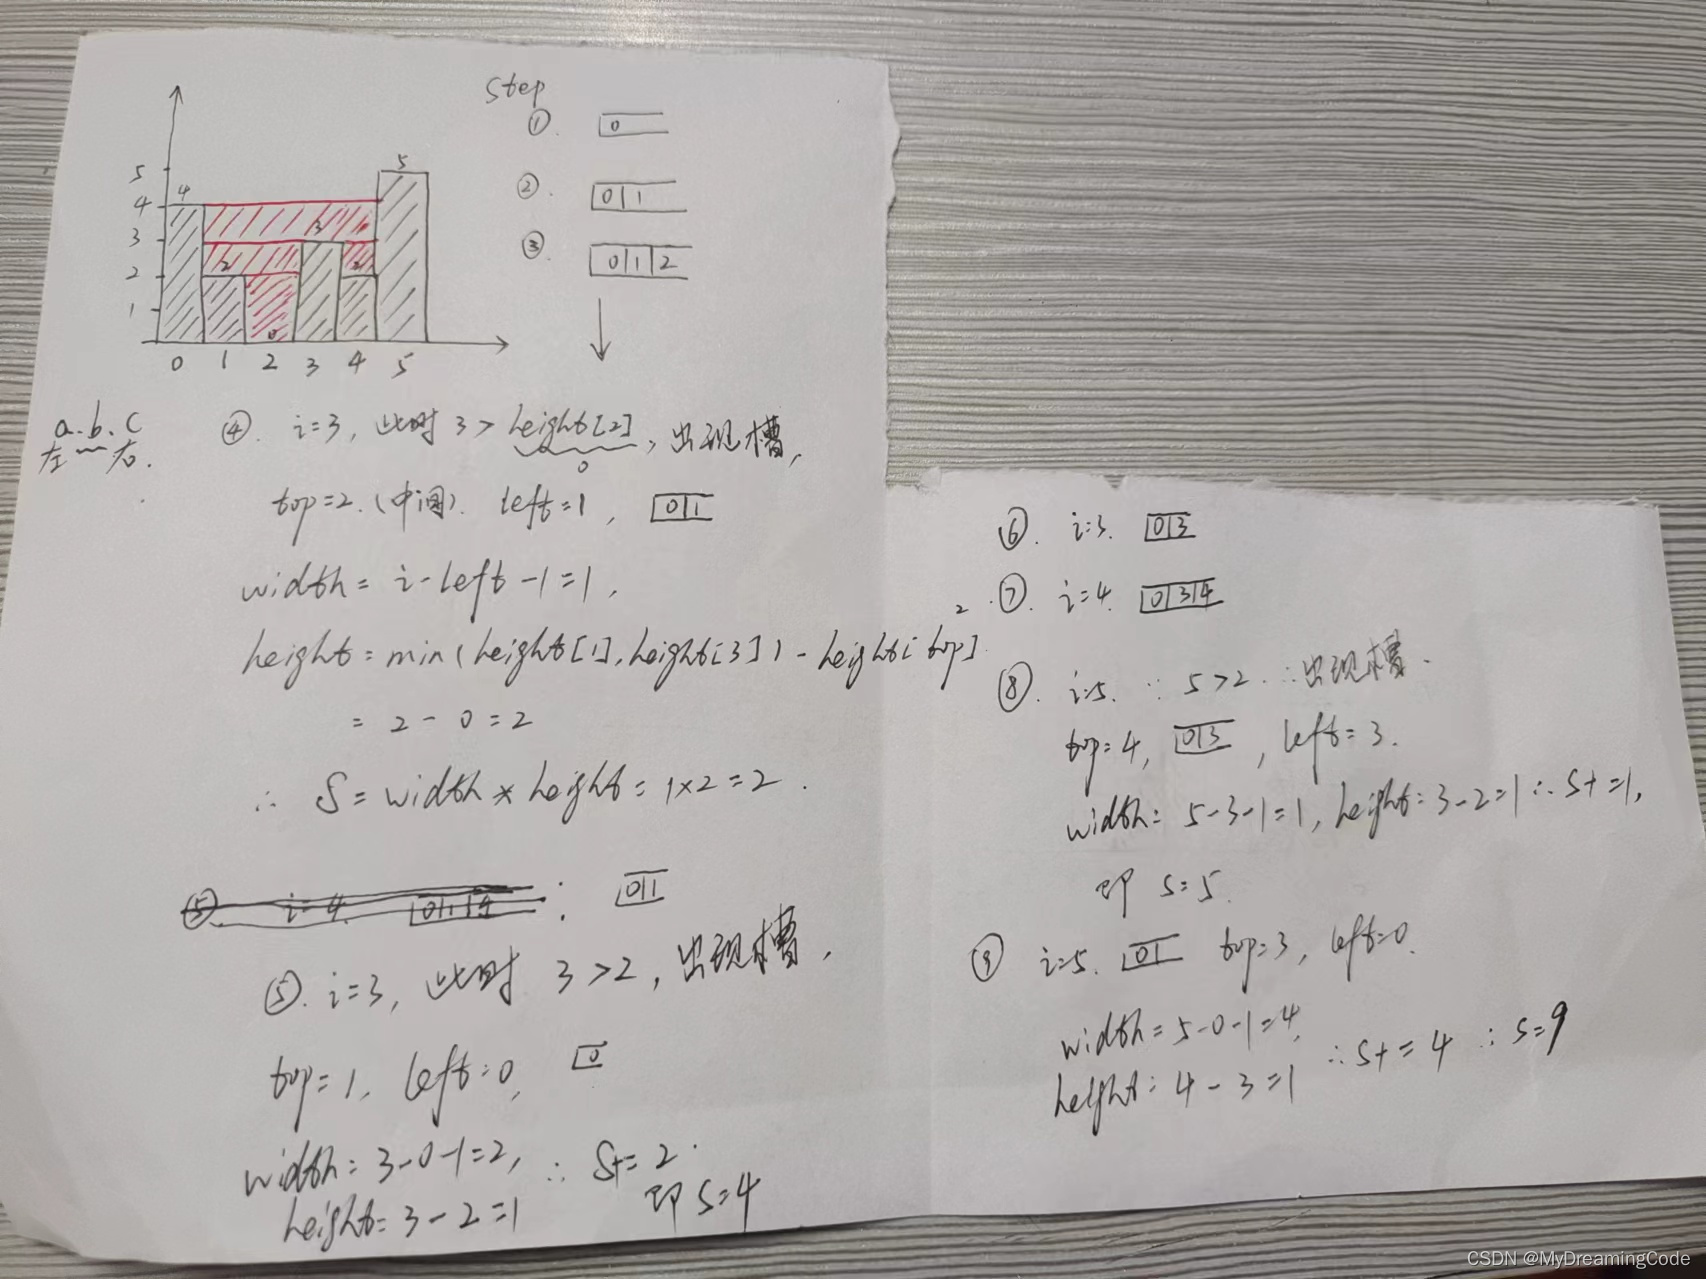 Step
①. 0
②. 0 1
③. 0 1 2
5
4
3
2
1
4
2
0
3
2
5
0 1 2 3 4 5
a.b.c
左 右.
④. i=3, 此时 3 > height[2], 出现槽,
0
top=2.(中间). left=1, 0 1
width= i-left-1=1,
height= min(height[1],height[3])-height[top]
= 2 - 0 = 2
∴ S= width * height= 1×2=2.
⑤ i=4. 0 1 4 : 0 1
⑤. i=3, 此时 3>2, 出现槽,
top=1, left=0, 0
width=3-0-1=2, ∴ S+=2.
height=3-2=1 即 S=4
⑥. i=3. 0 3
2 .⑦. i=4. 0 3 4
⑧. i=5. ∵ 5>2. ∴出现槽.
top=4, 0 3, left=3.
width=5-3-1=1, height=3-2=1 ∴ S+=1,
即 S=5.
⑨ i=5. 0 top=3, left=0.
width=5-0-1=4,
height=4-3=1 ∴S+=4 ∴ S=9
CSDN @MyDreamingCode